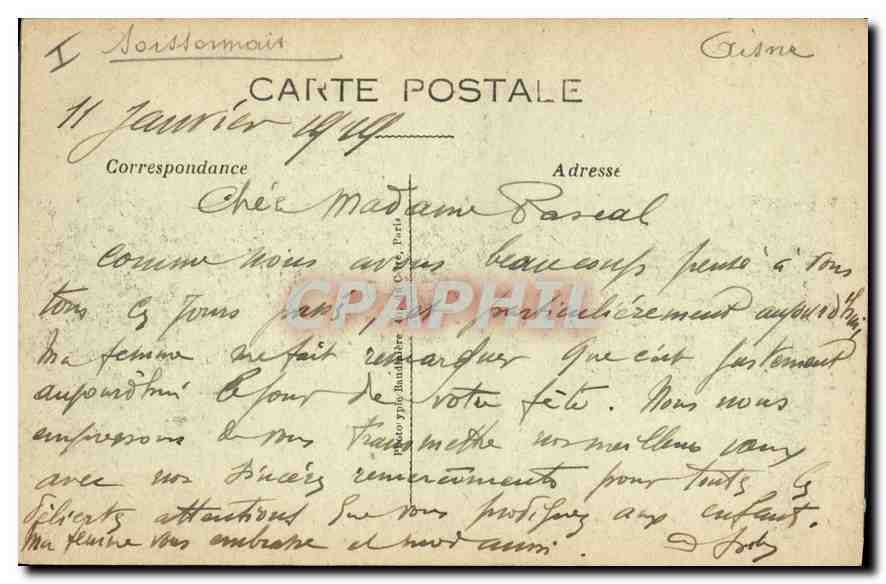 I Soissonnais Aisne
CARTE POSTALE
11 Janvier 1919
Correspondance Adresse
Chée Madame Pascal
Comme Nous avons beaucoup pensé à vous
tous ces jours passés, et particulièrement aujourd'hui
Ma femme me fait remarquer que c'est justement
aujourd'hui le jour de votre fête. Nous nous
empressons de vous transmettre nos meilleurs vœux
avec nos sincères remerciements pour toutes les
délicates attentions que vous prodiguez aux enfants.
Ma femme vous embrasse et moi aussi.
Phototypie Baudinière Paris
CPAPHIL